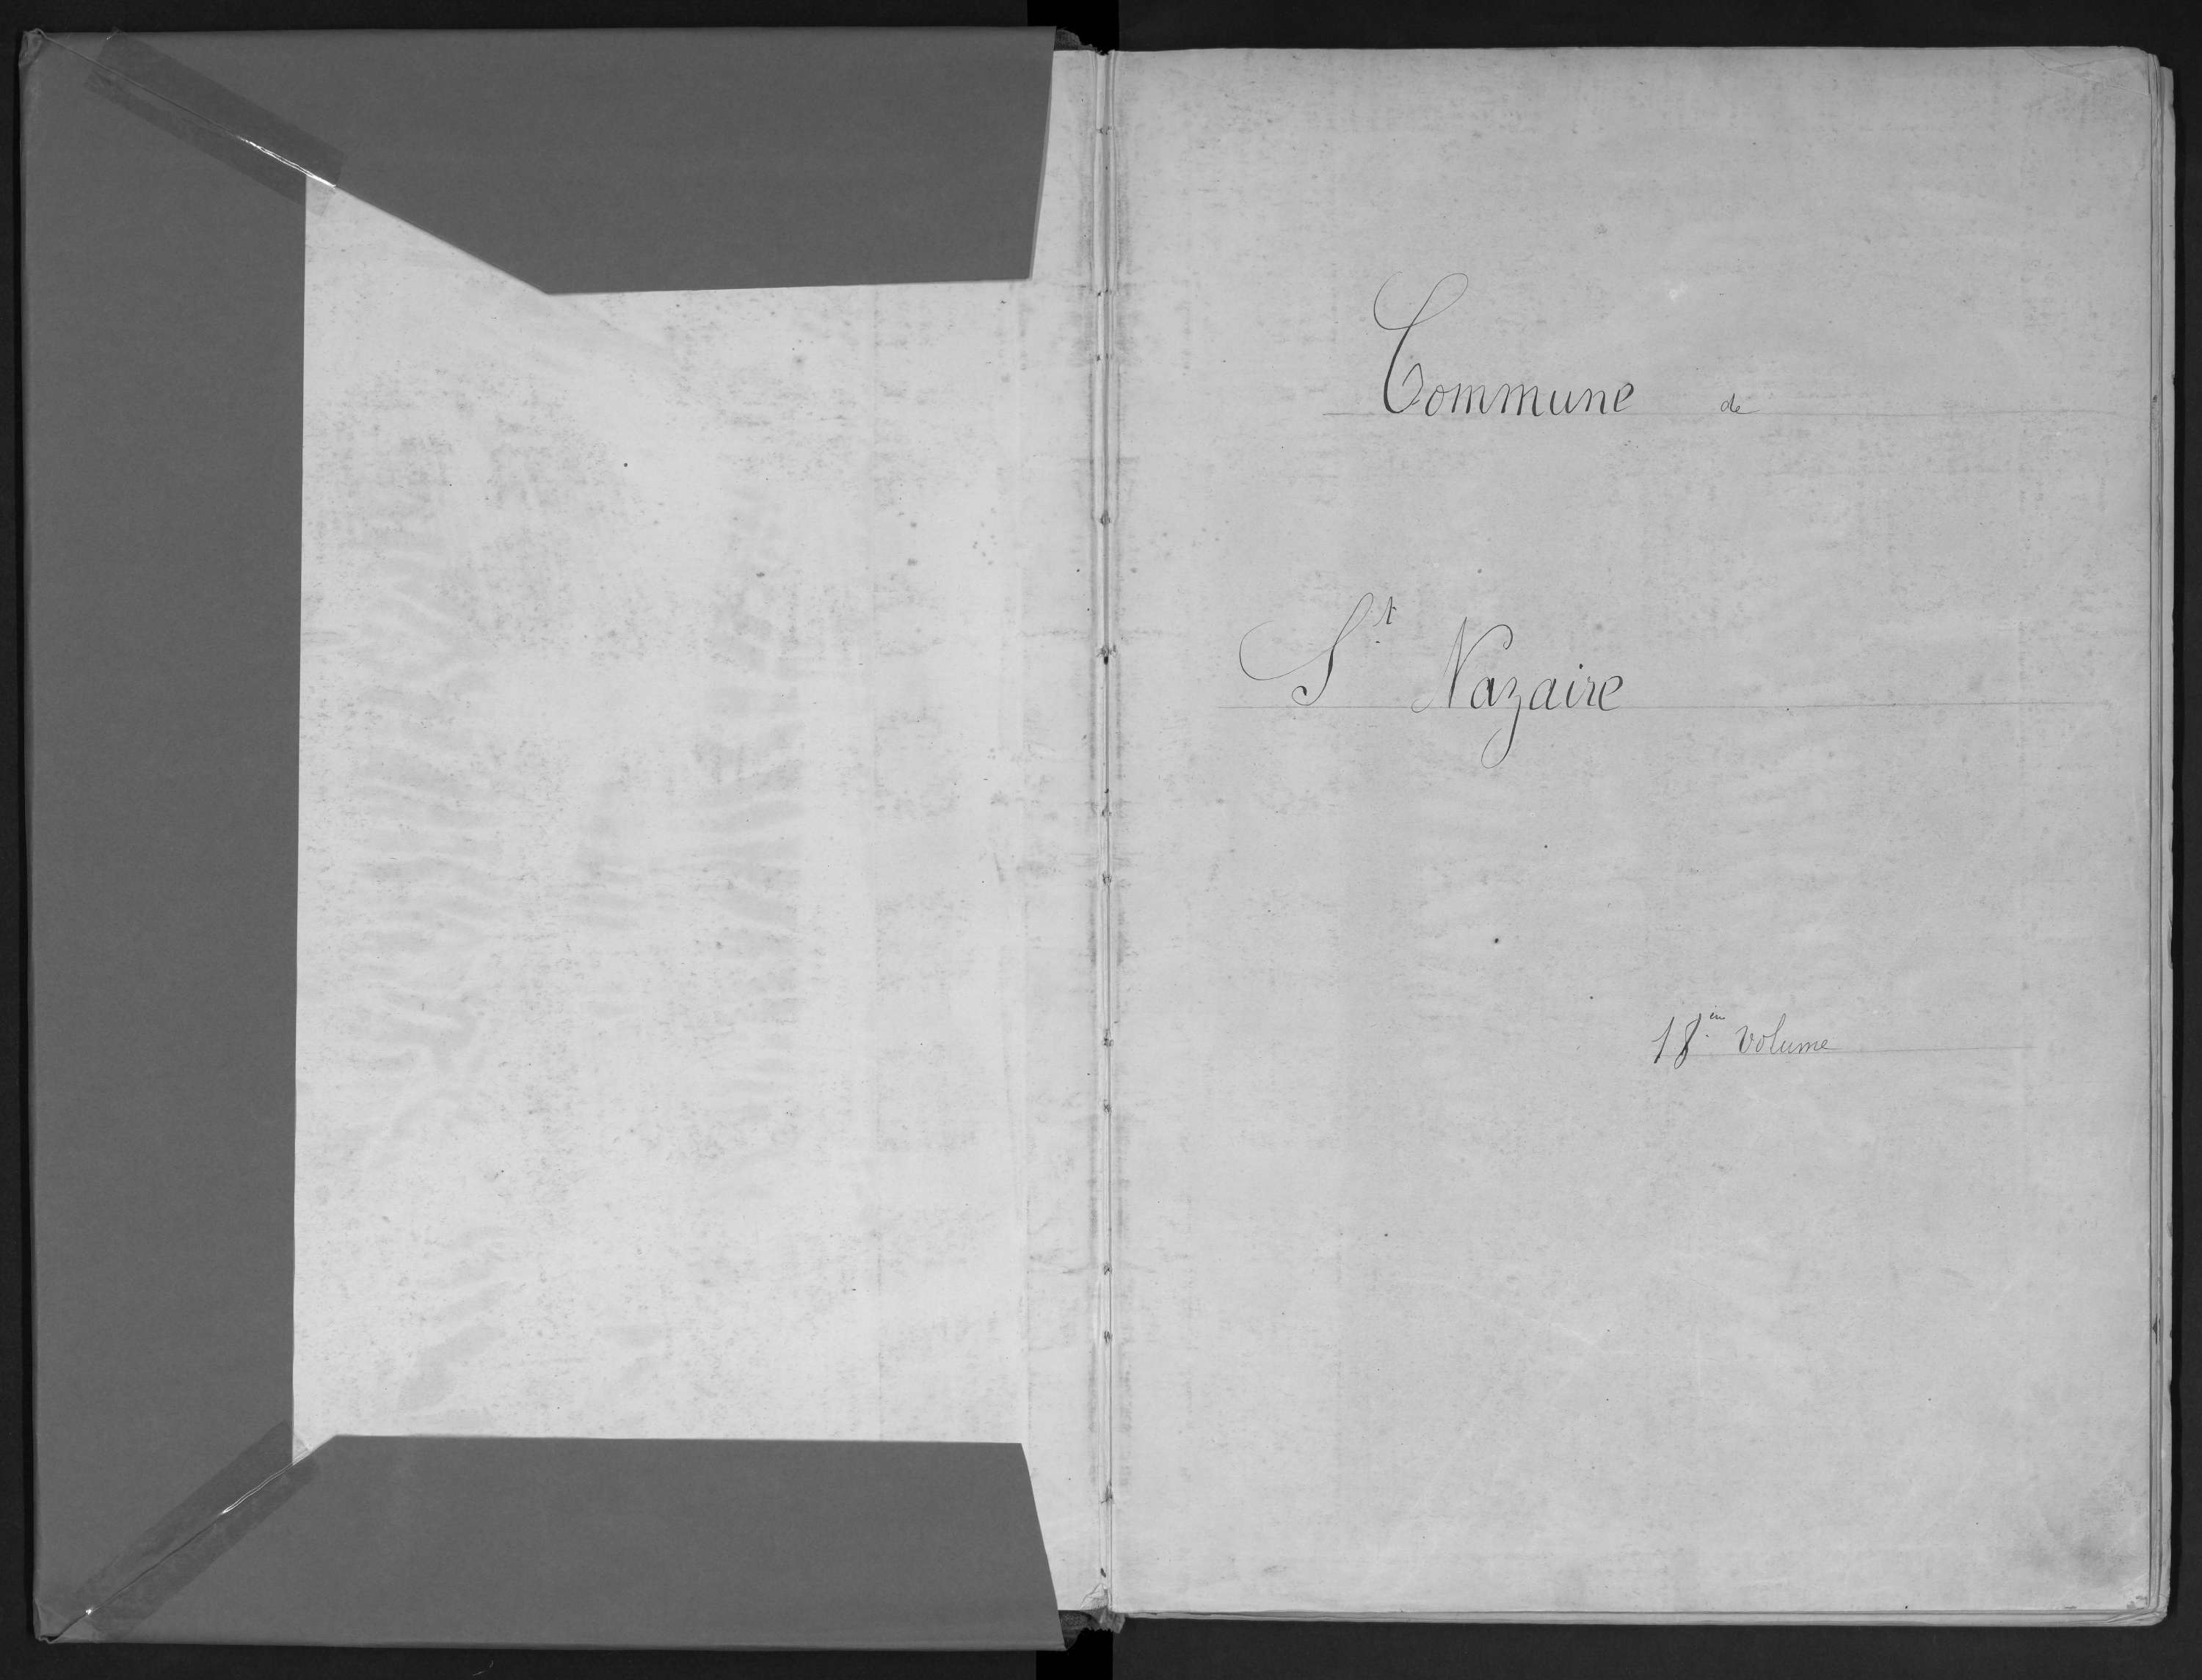 Commune de
St Nazaire
18em volume